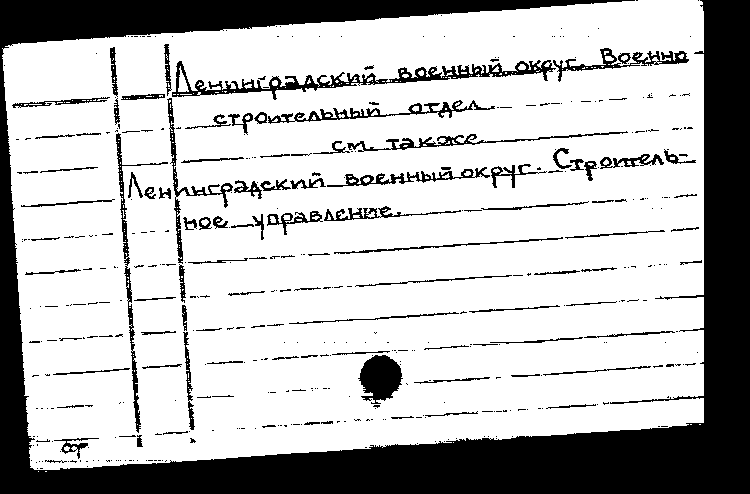 Ленинградский военный округ. Военно-
строительный отдел.
см. также
Ленинградский военный округ. Строитель-
ное управление.